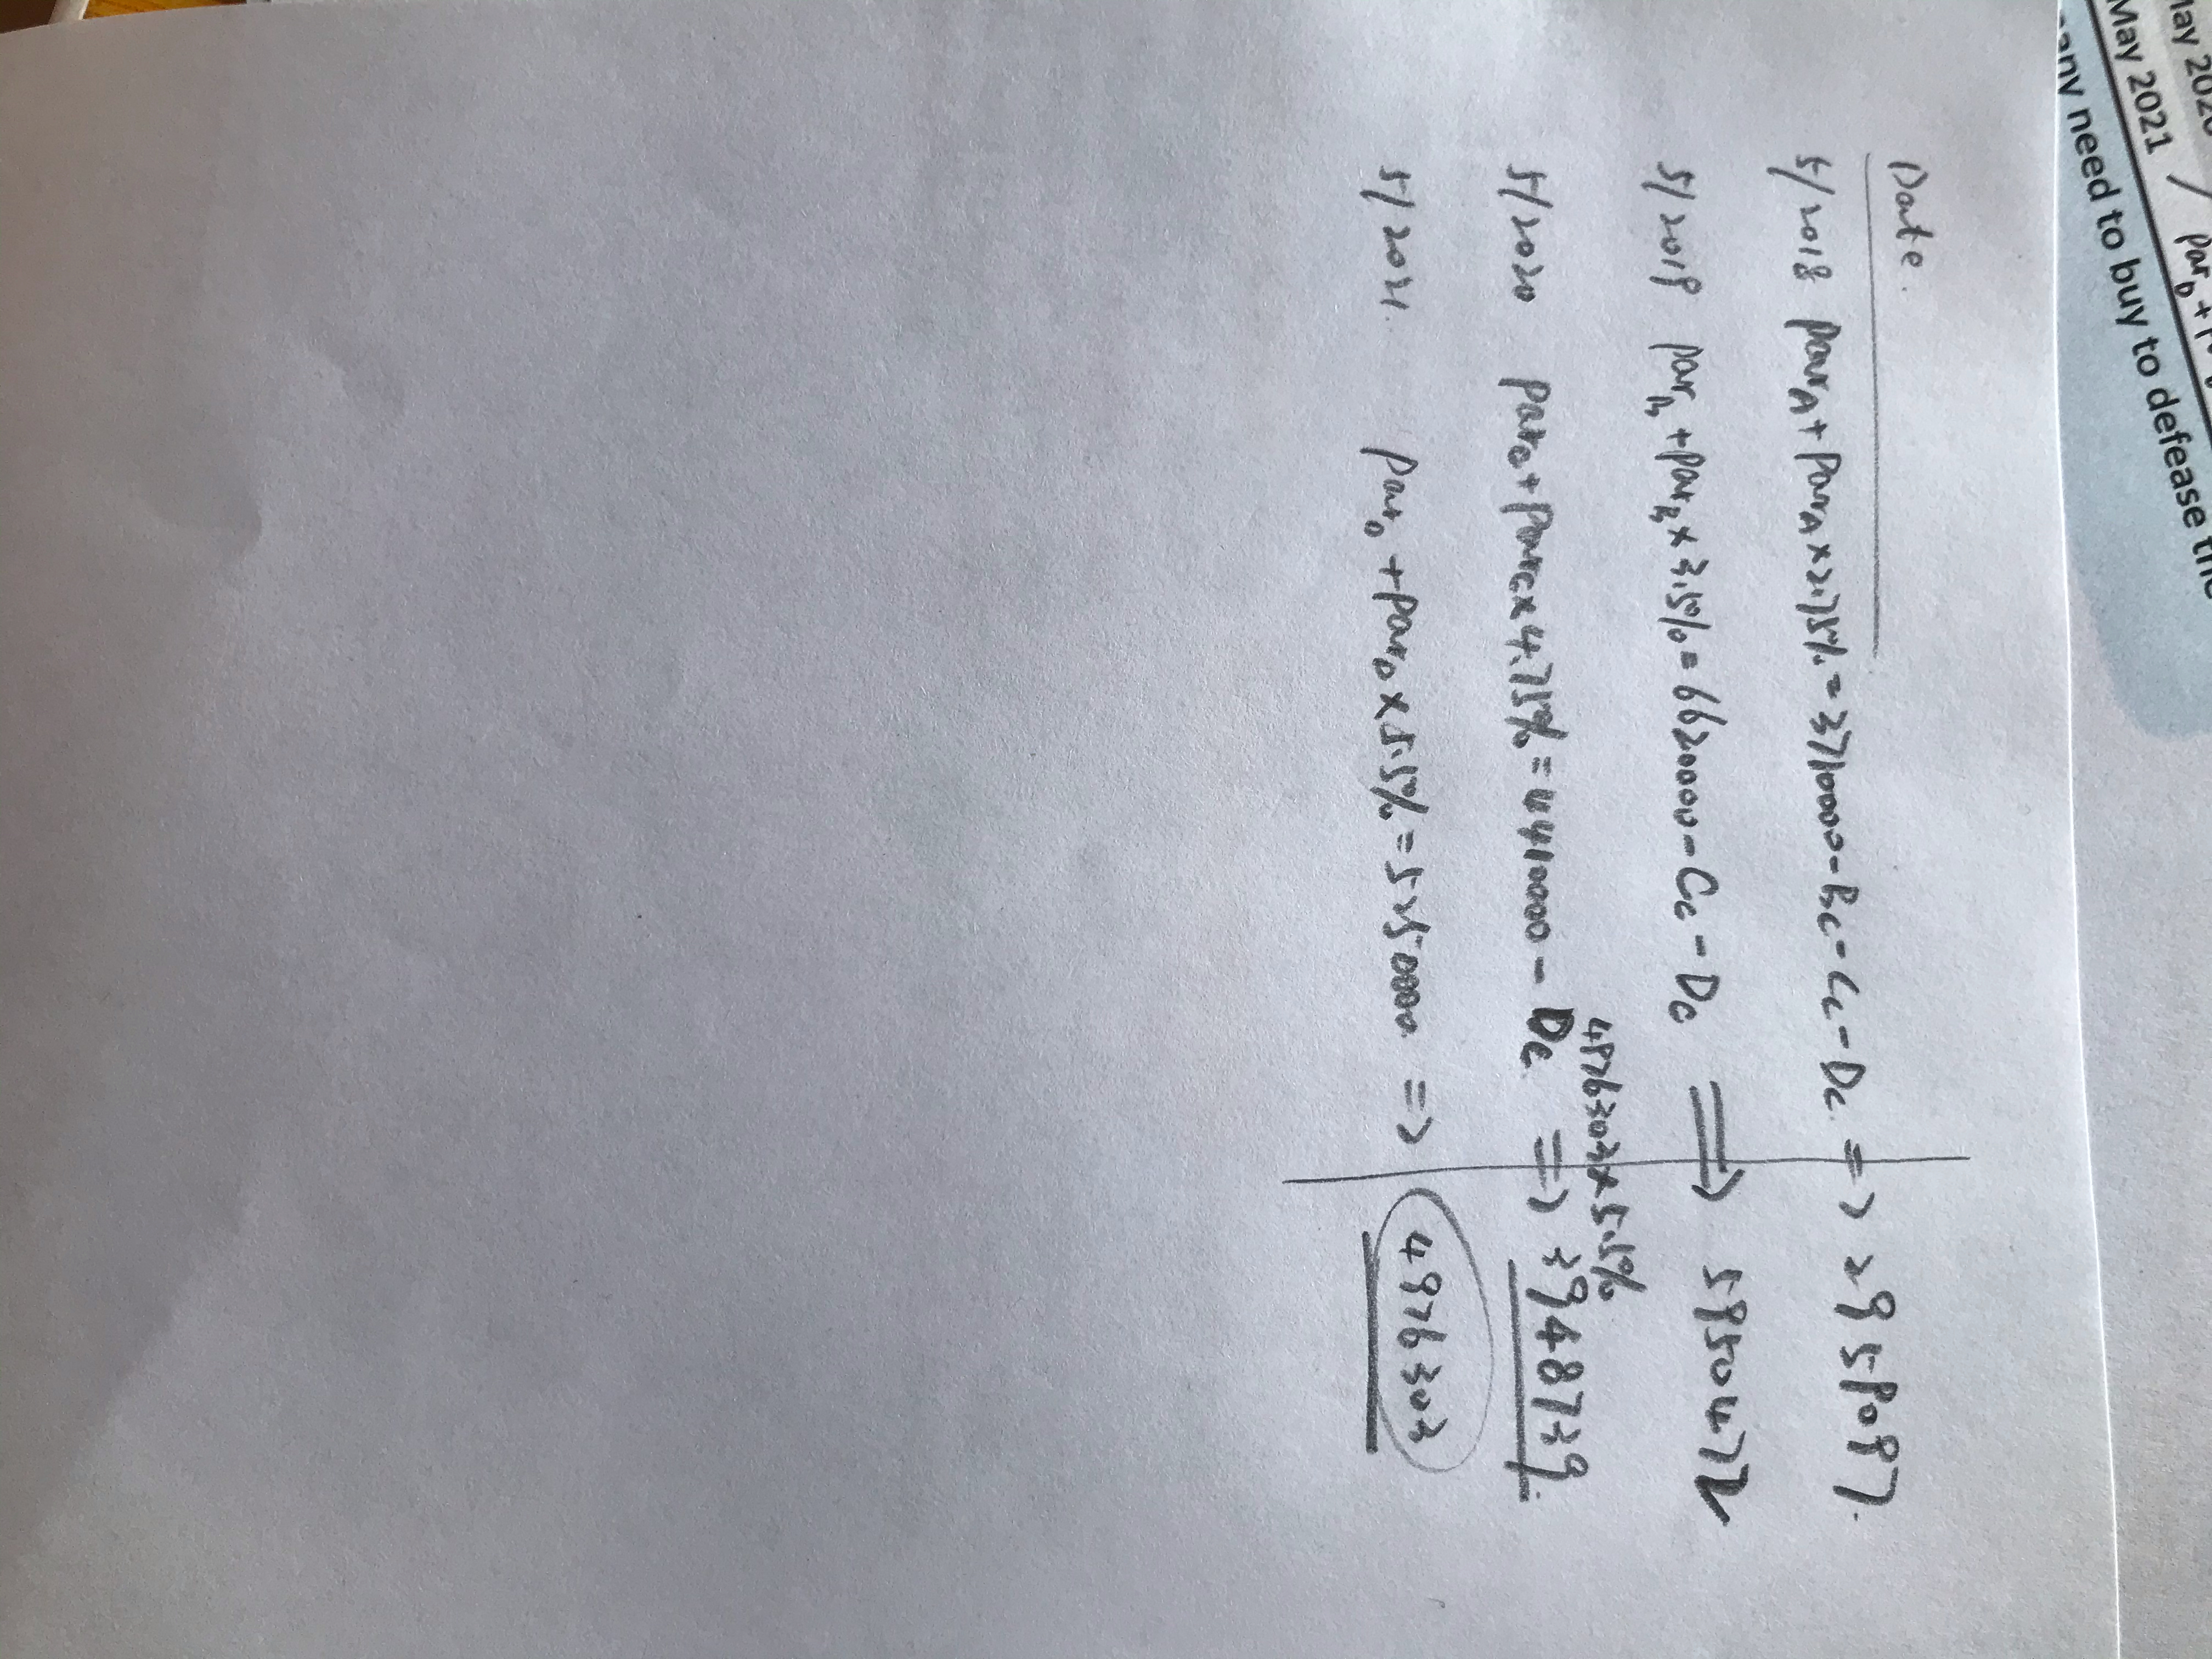 May 2020
May 2021 / Par_D +
any need to buy to defease the
Date.
5/2018 Par_A + Par_A × 2.75% = 3710000 - B_C - C_C - D_C. => 2959097.
5/2019 Par_B + Par_B × 3.5% = 6620000 - C_C - D_C => 5950472
4976303 × 5.5%
5/2020 Par_C + Par_C × 4.75% = 4410000 - D_C => 3948739.
5/2021. Par_D + Par_D × 5.5% = 5250000 => 4976303